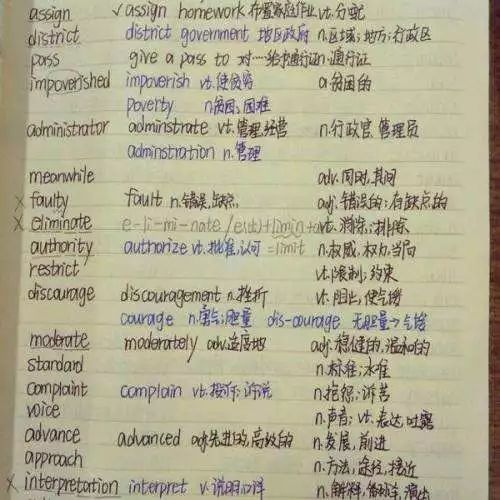 assign ✓assign homework 布置家庭作业 vt.分配
district district government 地区政府 n.区域;地方;行政区
pass give a pass to 对…给予通行证 n.通行证
impoverished impoverish vt.使贫穷 a.贫困的
poverty n.贫困,困难
administrator adminstrate vt.管理,经营 n.行政官,管理员
adminstration n.管理
meanwhile adv.同时,其间
× faulty fault n.错误,缺点 adj.错误的;有缺点的
× eliminate e-li-mi-nate /e(出)+limin+ vt.消除;排除
authority authorize vt.批准,认可 =limit n.权威,权力,当局
restrict vt.限制;约束
discourage discouragement n.挫折 vt.阻止,使气馁
courage n.勇气;胆量 dis-courage 无胆量→气馁
moderate moderately adv.适度地 adj.稳健的,温和的
standard n.标准;水准
complaint complain vt.投诉;诉说 n.抱怨;诉苦
voice n.声音;vt.表达,吐露
advance advanced adj.先进的,高级的 n.发展,前进
approach n.方法,途径,接近
× interpretation interpret v.说明,口译 n.解释,翻译,演出